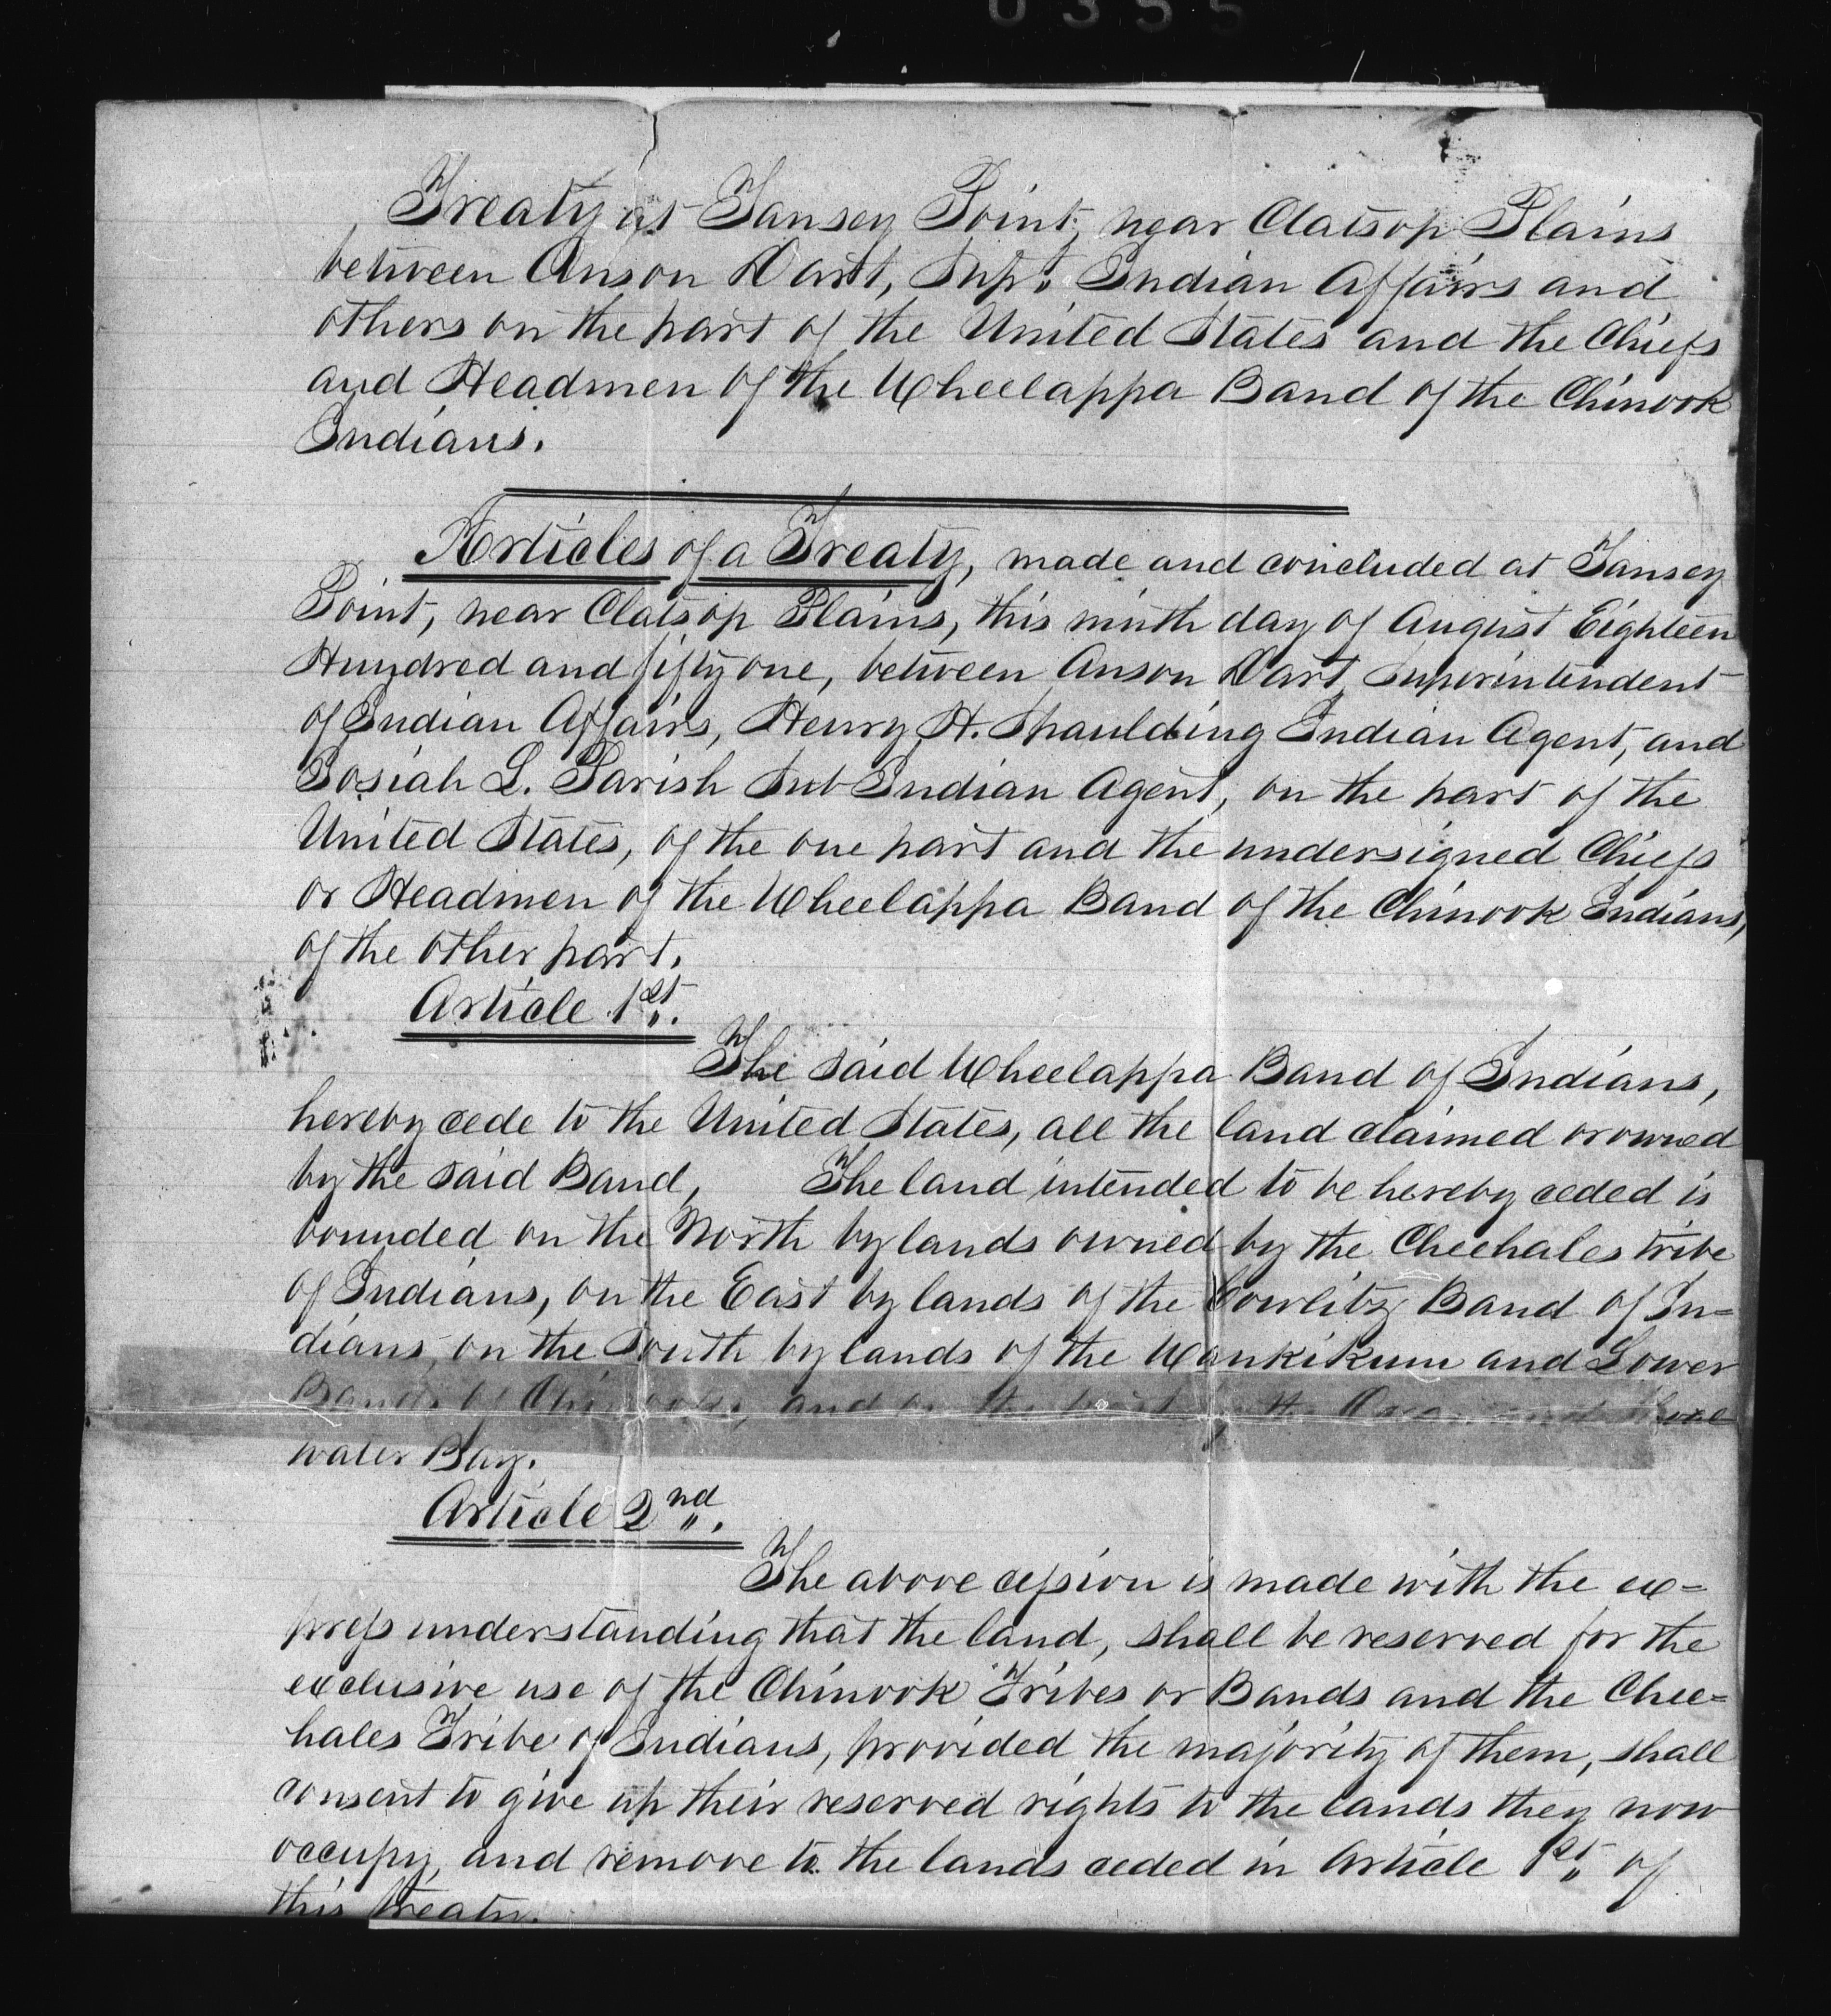 0355
Treaty at Tansey Point, near Clatsop Plains
between Anson Dart, Supt. Indian Affairs and
others on the part of the United States and the Chiefs
and Headmen of the Wheelappa Band of the Chinook
Indians.
Articles of a Treaty, made and concluded at Tansey
Point, near Clatsop Plains, this ninth day of August Eighteen
Hundred and fifty one, between Anson Dart, Superintendent
of Indian Affairs, Henry H. Spaulding Indian Agent, and
Josiah L. Parish Sub Indian Agent, on the part of the
United States, of the one part and the undersigned Chiefs
or Headmen of the Wheelappa Band of the Chinook Indians,
of the other part.
Article 1st.
The said Wheelappa Band of Indians,
hereby cede to the United States, all the land claimed or owned
by the said Band, The land intended to be hereby ceded is
bounded on the North by lands owned by the Cheehales tribe
of Indians, on the East by lands of the Cowlitz Band of In=
dians, on the South by lands of the Wankikum and Lower
Bands of Chinooks, and on the West by the Ocean and Shoal
water Bay.
Article 2nd.
The above cession is made with the ex=
press understanding that the land, shall be reserved for the
exclusive use of the Chinook Tribes or Bands and the Chee=
hales Tribe of Indians, provided the majority of them, shall
consent to give up their reserved rights to the lands they now
occupy, and remove to the lands ceded in Article 1st of
this treaty.